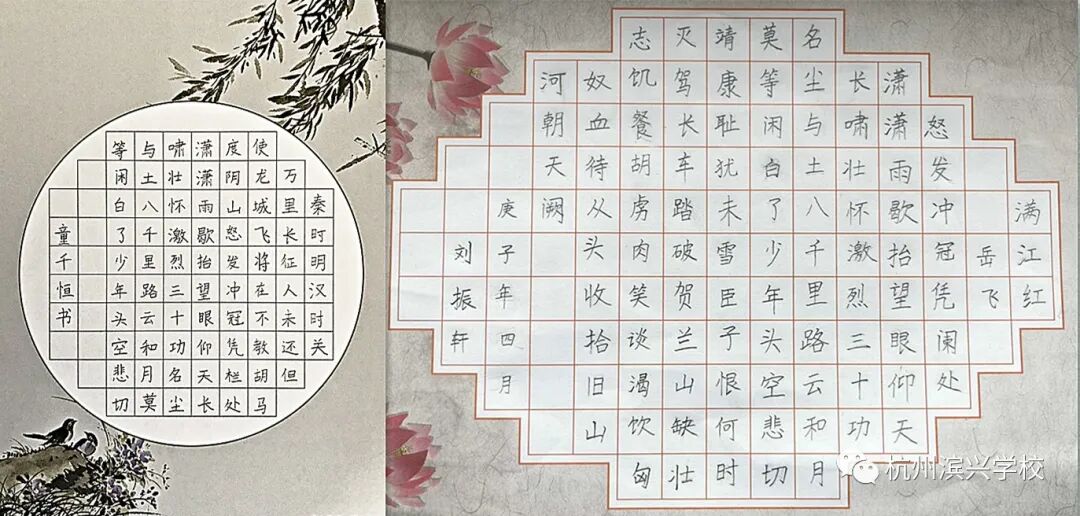 秦时明汉时关
万里长征人未还但
使龙城飞将在不教胡马
度阴山怒发冲冠凭栏处
潇潇雨歇抬望眼仰天长
啸壮怀激烈三十功名尘
与土八千里路云和月莫
等闲白了少年头空悲切
童千恒书
满江红
岳飞
怒发冲冠凭阑处
潇潇雨歇抬望眼仰天
长啸壮怀激烈三十功
名尘与土八千里路云和月
莫等闲白了少年头空悲切
靖康耻犹未雪臣子恨何时
灭驾长车踏破贺兰山缺壮
志饥餐胡虏肉笑谈渴饮匈
奴血待从头收拾旧山
河朝天阙
庚子年四月
刘振轩
杭州滨兴学校